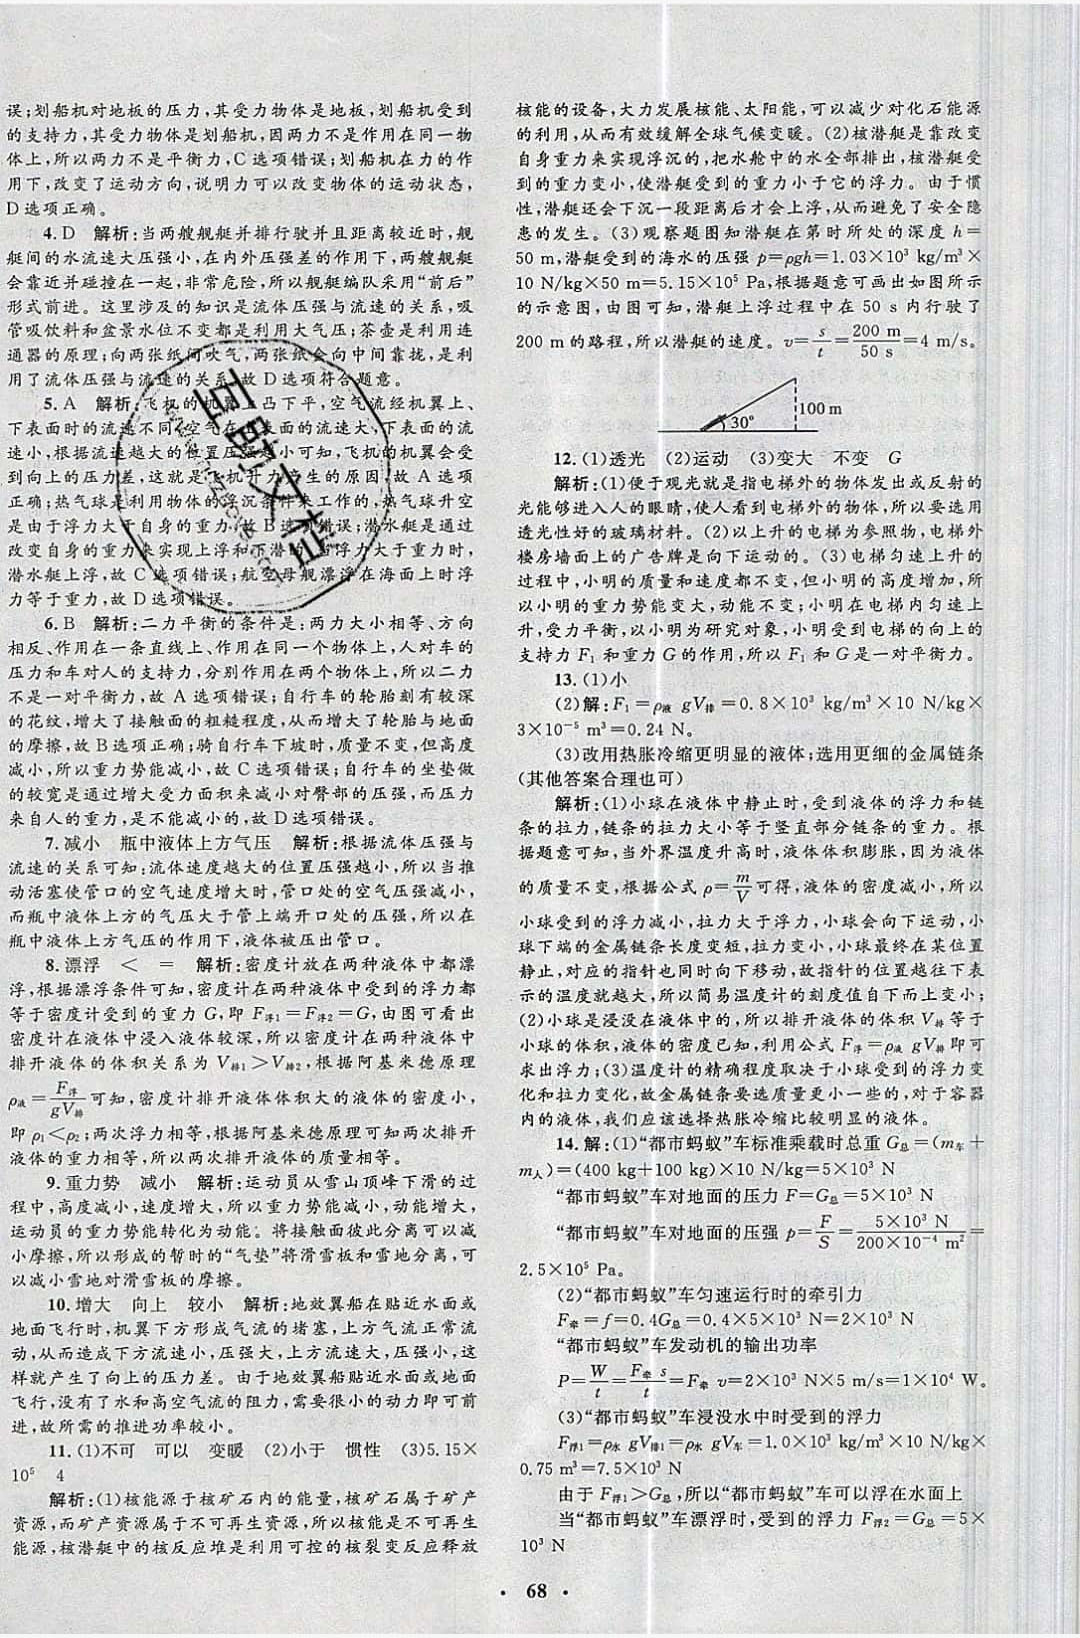 误;划船机对地板的压力,其受力物体是地板,划船机受到
的支持力,其受力物体是划船机,因两力不是作用在同一物
体上,所以两力不是平衡力,C选项错误;划船机在力的作
用下,改变了运动方向,说明力可以改变物体的运动状态,
D选项正确。
4. D 解析:当两艘舰艇并排行驶并且距离较近时,舰
艇间的水流速大压强小,在内外压强差的作用下,两艘舰艇
会靠近并碰撞在一起,非常危险,所以舰艇编队采用“前后”
形式前进。这里涉及的知识是流体压强与流速的关系,吸
管吸饮料和盆景水位不变都是利用大气压;茶壶是利用连
通器的原理;向两张纸间吹气,两张纸会向中间靠拢,是利
用了流体压强与流速的关系,故D选项符合题意。
5. A 解析:飞机的机翼上凸下平,空气流经机翼上、
下表面时的流速不同,空气在上表面的流速大,下表面的流
速小,根据流速越大的位置压强越小可知,飞机的机翼会受
到向上的压力差,这就是飞机升力产生的原因,故A选项
正确;热气球是利用物体的浮沉条件来工作的,热气球升空
是由于浮力大于自身的重力,故B选项错误;潜水艇是通过
改变自身的重力来实现上浮和下潜的,当浮力大于重力时,
潜水艇上浮,故C选项错误;航空母舰漂浮在海面上时浮
力等于重力,故D选项错误。
6. B 解析:二力平衡的条件是:两力大小相等、方向
相反、作用在一条直线上、作用在同一物体上,人对车的
压力和车对人的支持力,分别作用在两个物体上,所以二力
不是一对平衡力,故A选项错误;自行车的轮胎刻有较深
的花纹,增大了接触面的粗糙程度,从而增大了轮胎与地面
的摩擦,故B选项正确;骑自行车下坡时,质量不变,但高度
减小,所以重力势能减小,故C选项错误;自行车的坐垫做
的较宽是通过增大受力面积来减小对臀部的压强,而压力
来自人的重力,是不能减小的,故D选项错误。
7. 减小 瓶中液体上方气压 解析:根据流体压强与
流速的关系可知:流体流速度越大的位置压强越小,所以当推
动活塞使管口的空气速度增大时,管口处的空气压强减小,
而瓶中液体上方的气压大于管上端开口处的压强,所以在
瓶中液体上方气压的作用下,液体被压出管口。
8. 漂浮 < = 解析:密度计放在两种液体中都漂
浮,根据漂浮条件可知,密度计在两种液体中受到的浮力都
等于密度计受到的重力G,即F浮1=F浮2=G,由图可看出
密度计在液体中浸入液体较深,所以密度计在两种液体中
排开液体的体积关系为V排1>V排2,根据阿基米德原理
ρ液=F浮/gV排可知,密度计排开液体体积大的液体的密度小,
即ρ1<ρ2;两次浮力相等,根据阿基米德原理可知两次排开
液体的重力相等,所以两次排开液体的质量相等。
9. 重力势 减小 解析:运动员从雪山顶峰下滑的过
程中,高度减小,速度增大,所以重力势能减小,动能增大,
运动员的重力势能转化为动能。将接触面彼此分离可以减
小摩擦,所以形成的暂时的“气垫”将滑雪板和雪地分离,可
以减小雪地对滑雪板的摩擦。
10. 增大 向上 较小 解析:地效翼船在贴近水面或
地面飞行时,机翼下方形成气流的堵塞,上方气流正常流
动,从而造成下方流速小,压强大,上方流速大,压强小,这
样就产生了向上的压力差。由于地效翼船贴近水面或地面
飞行,没有了水和高空气流的阻力,需要很小的动力即可前
进,故所需的推进功率较小。
11. (1)不可 可以 变暖 (2)小于 惯性 (3)5.15×
10⁵ 4
解析:(1)核能源于核矿石内的能量,核矿石属于矿产
资源,而矿产资源属于不可再生资源,所以核能是不可再生
能源,核潜艇中的核反应堆是利用可控的核裂变反应释放
核能的设备,大力发展核能、太阳能,可以减少对化石能源
的利用,从而有效缓解全球气候变暖。(2)核潜艇是靠改变
自身重力来实现浮沉的,把水舱中的水全部排出,核潜艇受
到的重力变小,使潜艇受到的重力小于它的浮力。由于惯
性,潜艇还会下沉一段距离后才会上浮,从而避免了安全隐
患的发生。(3)观察题图知潜艇在第时所处的深度h=
50 m,潜艇受到的海水的压强p=ρgh=1.03×10³ kg/m³×
10 N/kg×50 m=5.15×10⁵ Pa,根据题意可画出如图所示
的示意图,由图可知,潜艇上浮过程中在50 s内行驶了
200 m的路程,所以潜艇的速度。v=s/t=200 m/50 s=4 m/s。
30°
100 m
12. (1)透光 (2)运动 (3)变大 不变 G
解析:(1)便于观光就是指电梯外的物体发出或反射的
光能够进入人的眼睛,使人看到电梯外的物体,所以要选用
透光性好的玻璃材料。(2)以上升的电梯为参照物,电梯外
楼房墙面上的广告牌是向下运动的。(3)电梯匀速上升的
过程中,小明的质量和速度都不变,但小明的高度增加,所
以小明的重力势能变大,动能不变;小明在电梯内匀速上
升,受力平衡,以小明为研究对象,小明受到电梯的向上的
支持力F1和重力G的作用,所以F1和G是一对平衡力。
13. (1)小
(2)解:F1=ρ液gV排=0.8×10³ kg/m³×10 N/kg×
3×10⁻⁵ m³=0.24 N。
(3)改用热胀冷缩更明显的液体;选用更细的金属链条
(其他答案合理也可)
解析:(1)小球在液体中静止时,受到液体的浮力和链
条的拉力,链条的拉力大小等于竖直部分链条的重力。根
据题意可知,当外界温度升高时,液体体积膨胀,因为液体
的质量不变,根据公式ρ=m/V可得,液体的密度减小,所以
小球受到的浮力减小,拉力大于浮力,小球会向下运动,小
球下端的金属链条长度变短,拉力变小,小球最终在某位置
静止,对应的指针也同时向下移动,故指针的位置越往下表
示的温度就越大,所以简易温度计的刻度值自下而上变小;
(2)小球是浸没在液体中的,所以排开液体的体积V排等于
小球的体积,液体的密度已知,利用公式F浮=ρ液gV排即可
求出浮力;(3)温度计的精确程度取决于小球受到的浮力变
化和拉力变化,故金属链条要选质量更小一些的,对于容器
内的液体,我们应该选择热胀冷缩比较明显的液体。
14. 解:(1)“都市蚂蚁”车标准乘载时总重G总=(m车+
m人)=(400 kg+100 kg)×10 N/kg=5×10³ N
“都市蚂蚁”车对地面的压力F=G总=5×10³ N
“都市蚂蚁”车对地面的压强p=F/S=5×10³ N/200×10⁻⁴ m²=
2.5×10⁵ Pa。
(2)“都市蚂蚁”车匀速运行时的牵引力
F牵=f=0.4G总=0.4×5×10³ N=2×10³ N
“都市蚂蚁”车发动机的输出功率
P=W/t=F牵s/t=F牵v=2×10³ N×5 m/s=1×10⁴ W。
(3)“都市蚂蚁”车浸没水中时受到的浮力
F浮1=ρ水gV排1=ρ水gV车=1.0×10³ kg/m³×10 N/kg×
0.75 m³=7.5×10³ N
由于F浮1>G总,所以“都市蚂蚁”车可以浮在水面上
当“都市蚂蚁”车漂浮时,受到的浮力F浮2=G总=5×
10³ N
· 68 ·